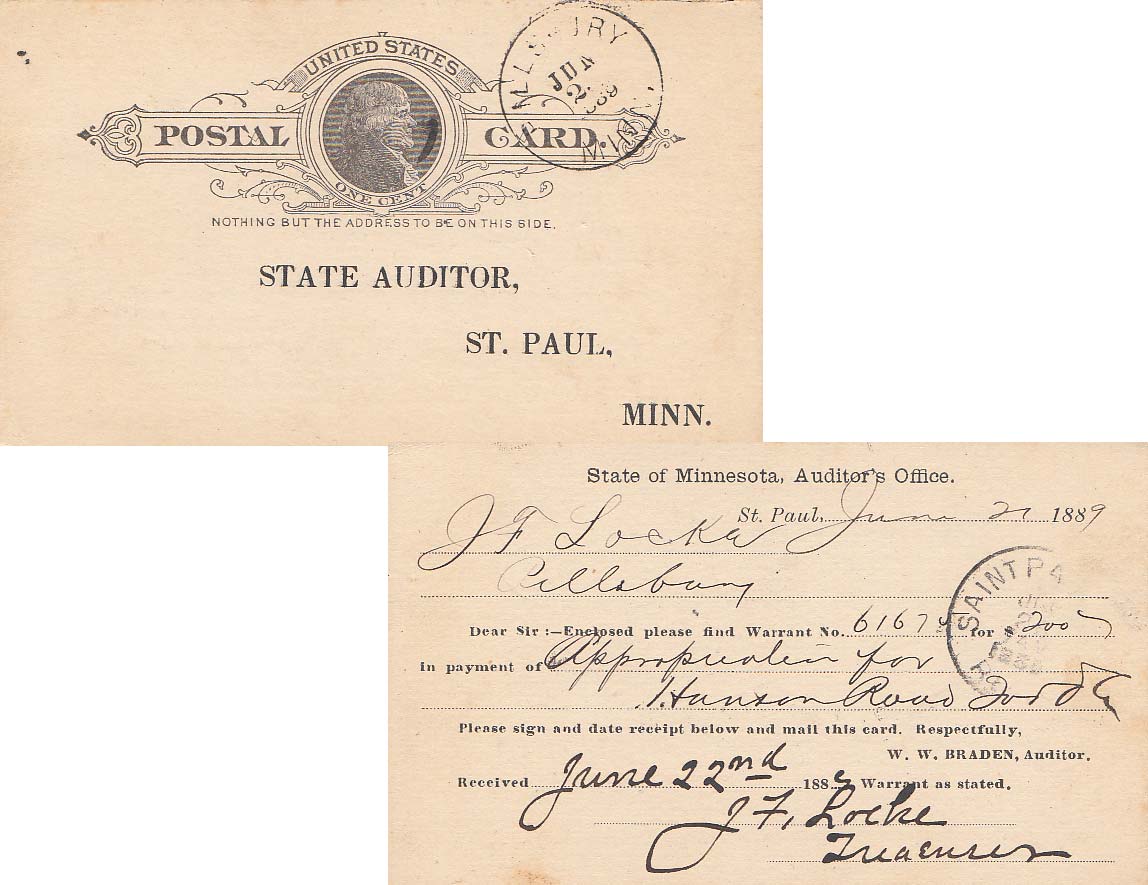 UNITED STATES
POSTAL CARD.
ONE CENT
NOTHING BUT THE ADDRESS TO BE ON THIS SIDE.
JUN
MINN.
STATE AUDITOR,
ST. PAUL,
MINN.
State of Minnesota, Auditor's Office.
St. Paul, June 21 1889
J F Locke
Pillsbury
SAINT PA
Dear Sir :—Enclosed please find Warrant No. 6167 for $ 200
in payment of Appropriation for
Hanson Road Todd Co
Please sign and date receipt below and mail this card. Respectfully,
W. W. BRADEN, Auditor.
Received June 22nd 1889 Warrant as stated.
J F, Locke
Treasurer